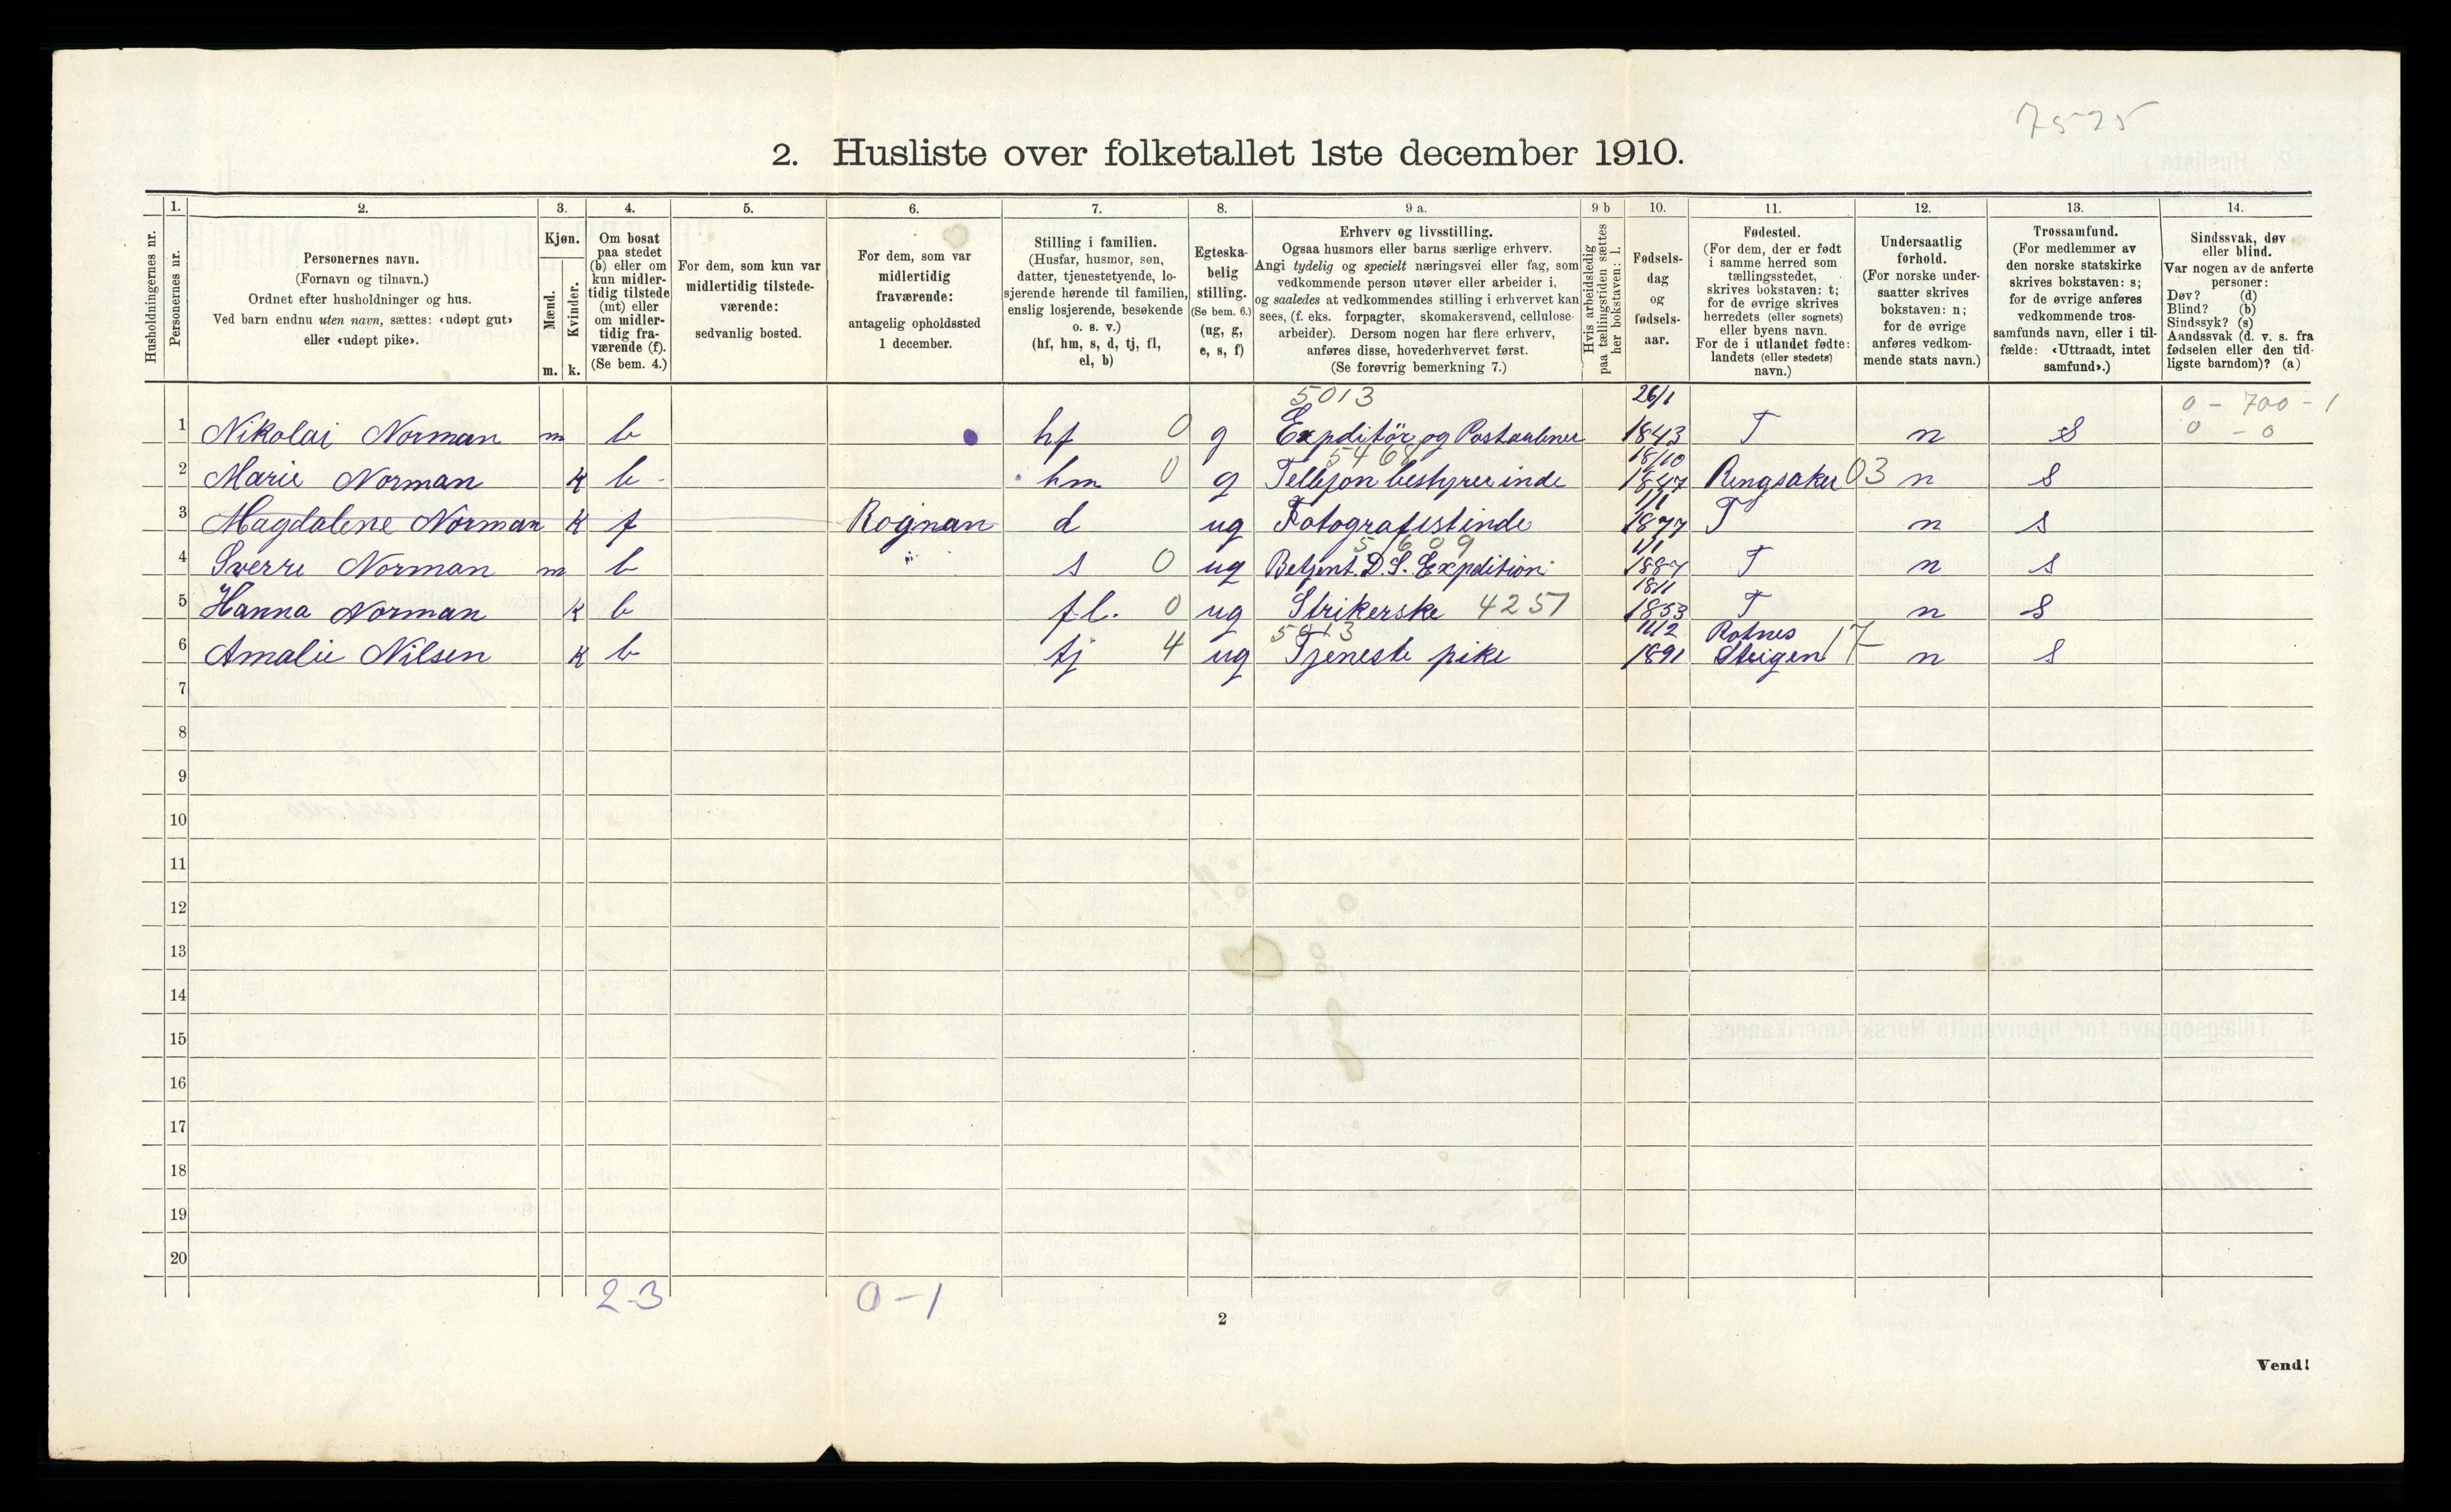 7525
2. Husliste over folketallet 1ste december 1910.
Husholdningernes nr.
1.
Personernes nr.
2.
Personernes navn.
(Fornavn og tilnavn.)
Ordnet efter husholdninger og hus.
Ved barn endnu uten navn, sættes: «udøpt gut»
eller «udøpt pike».
3.
Kjøn.
Mænd.
Kvinder.
m. k.
4.
Om bosat
paa stedet
(b) eller om
kun midler-
tidig tilstede
(mt) eller
om midler-
tidig fra-
værende (f).
(Se bem. 4.)
5.
For dem, som kun var
midlertidig tilstede-
værende:
sedvanlig bosted.
6.
For dem, som var
midlertidig
fraværende:
antagelig opholdssted
1 december.
7.
Stilling i familien.
(Husfar, husmor, søn,
datter, tjenestetyende, lo-
sjerende hørende til familien,
enslig losjerende, besøkende
o. s. v.)
(hf, hm, s, d, tj, fl,
el, b)
8.
Egteska-
belig
stilling.
(Se bem. 6.)
(ug, g,
e, s, f)
9 a.
Erhverv og livsstilling.
Ogsaa husmors eller barns særlige erhverv.
Angi tydelig og specielt næringsvei eller fag, som
vedkommende person utøver eller arbeider i,
og saaledes at vedkommendes stilling i erhvervet kan
sees, (f. eks. forpagter, skomakersvend, cellulose-
arbeider). Dersom nogen har flere erhverv,
anføres disse, hovederhvervet først.
(Se forøvrig bemerkning 7.)
9 b
Hvis arbeidsledig
paa tællingstiden sættes
her bokstaven: l.
10.
Fødsels-
dag
og
fødsels-
aar.
11.
Fødested.
(For dem, der er født
i samme herred som
tællingsstedet,
skrives bokstaven: t;
for de øvrige skrives
herredets (eller sognets)
eller byens navn.
For de i utlandet fødte:
landets (eller stedets)
navn.)
12.
Undersaatlig
forhold.
(For norske under-
saatter skrives
bokstaven: n;
for de øvrige
anføres vedkom-
mende stats navn.)
13.
Trossamfund.
(For medlemmer av
den norske statskirke
skrives bokstaven: s;
for de øvrige anføres
vedkommende tros-
samfunds navn, eller i til-
fælde: «Uttraadt, intet
samfund».)
14.
Sindssvak, døv
eller blind.
Var nogen av de anførte
personer:
Døv? (d)
Blind? (b)
Sindssyk? (s)
Aandssvak (d. v. s. fra
fødselen eller den tid-
ligste barndom)? (a)
5013 26/1 0 - 700 - 1
1 Nikolai Norman m b hf 0 g Expditör og Postaabner 1843 T n S 0 - 0
5468 18/10
2 Marie Norman k b - hm 0 g Tellefon bestyrerinde 1847 Ringsaker 03 n s
1/1
3 Magdalene Norman k f Rognan d ug Fotografistinde 1877 T n s
5609 1/1
4 Sverre Norman m b s 0 ug Betjent. D. S. Expdition 1887 T n s
18/11
5 Hanna Norman k b fl. 0 ug Strikerske 4251 1853 T n S
5013 11/2 Rotnes
6 Amalie Nilsen k b tj 4 ug Tjeneste pike 1891 Steigen 17 n s
7
8
9
10
11
12
13
14
15
16
17
18
19
20
2-3 0-1
2
Vend!